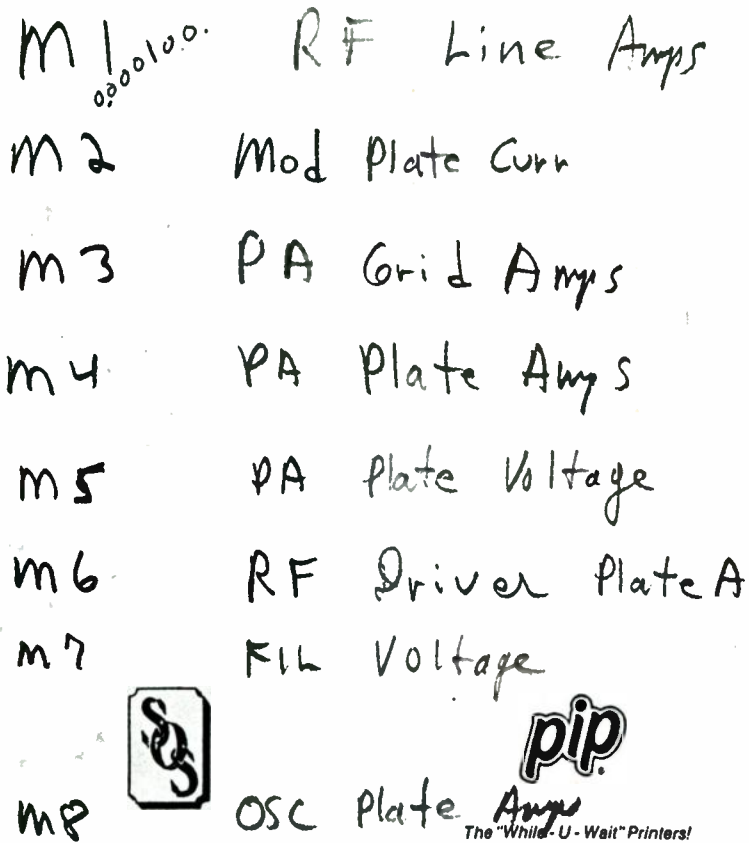 M1 RF Line Amps
0000100.
M2 Mod Plate Curr
M3 PA Grid Amps
M4 PA Plate Amps
M5 PA Plate Voltage
M6 RF Driver Plate A
M7 FIL Voltage
SOS
pip
M8 OSC Plate Amps
The "While - U - Wait" Printers!